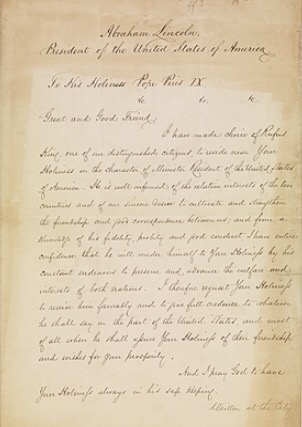 Abraham Lincoln,
President of the United States of America
To His Holiness Pope Pius IX.
&c. &c. &c.
Great and Good Friend
I have made choice of Rufus
King, one of our distinguished citizens, to reside near Your
Holiness in the character of Minister Resident of the United States
of America. He is well informed of the relative interests of the two
countries and of our sincere desire to cultivate and strengthen
the friendship and good correspondence between us; and from a
knowledge of his fidelity, probity and good conduct I have entire
confidence that he will render himself to Your Holiness by his
constant endeavors to preserve and advance the welfare and
interests of both nations. I therefore request Your Holiness
to receive him favorably and to give full credence to whatever
he shall say on the part of the United States, and most
of all when he shall assure Your Holiness of their friendship
and wishes for your prosperity.
And I pray God to have
Your Holiness always in his safe keeping.
Written at the City